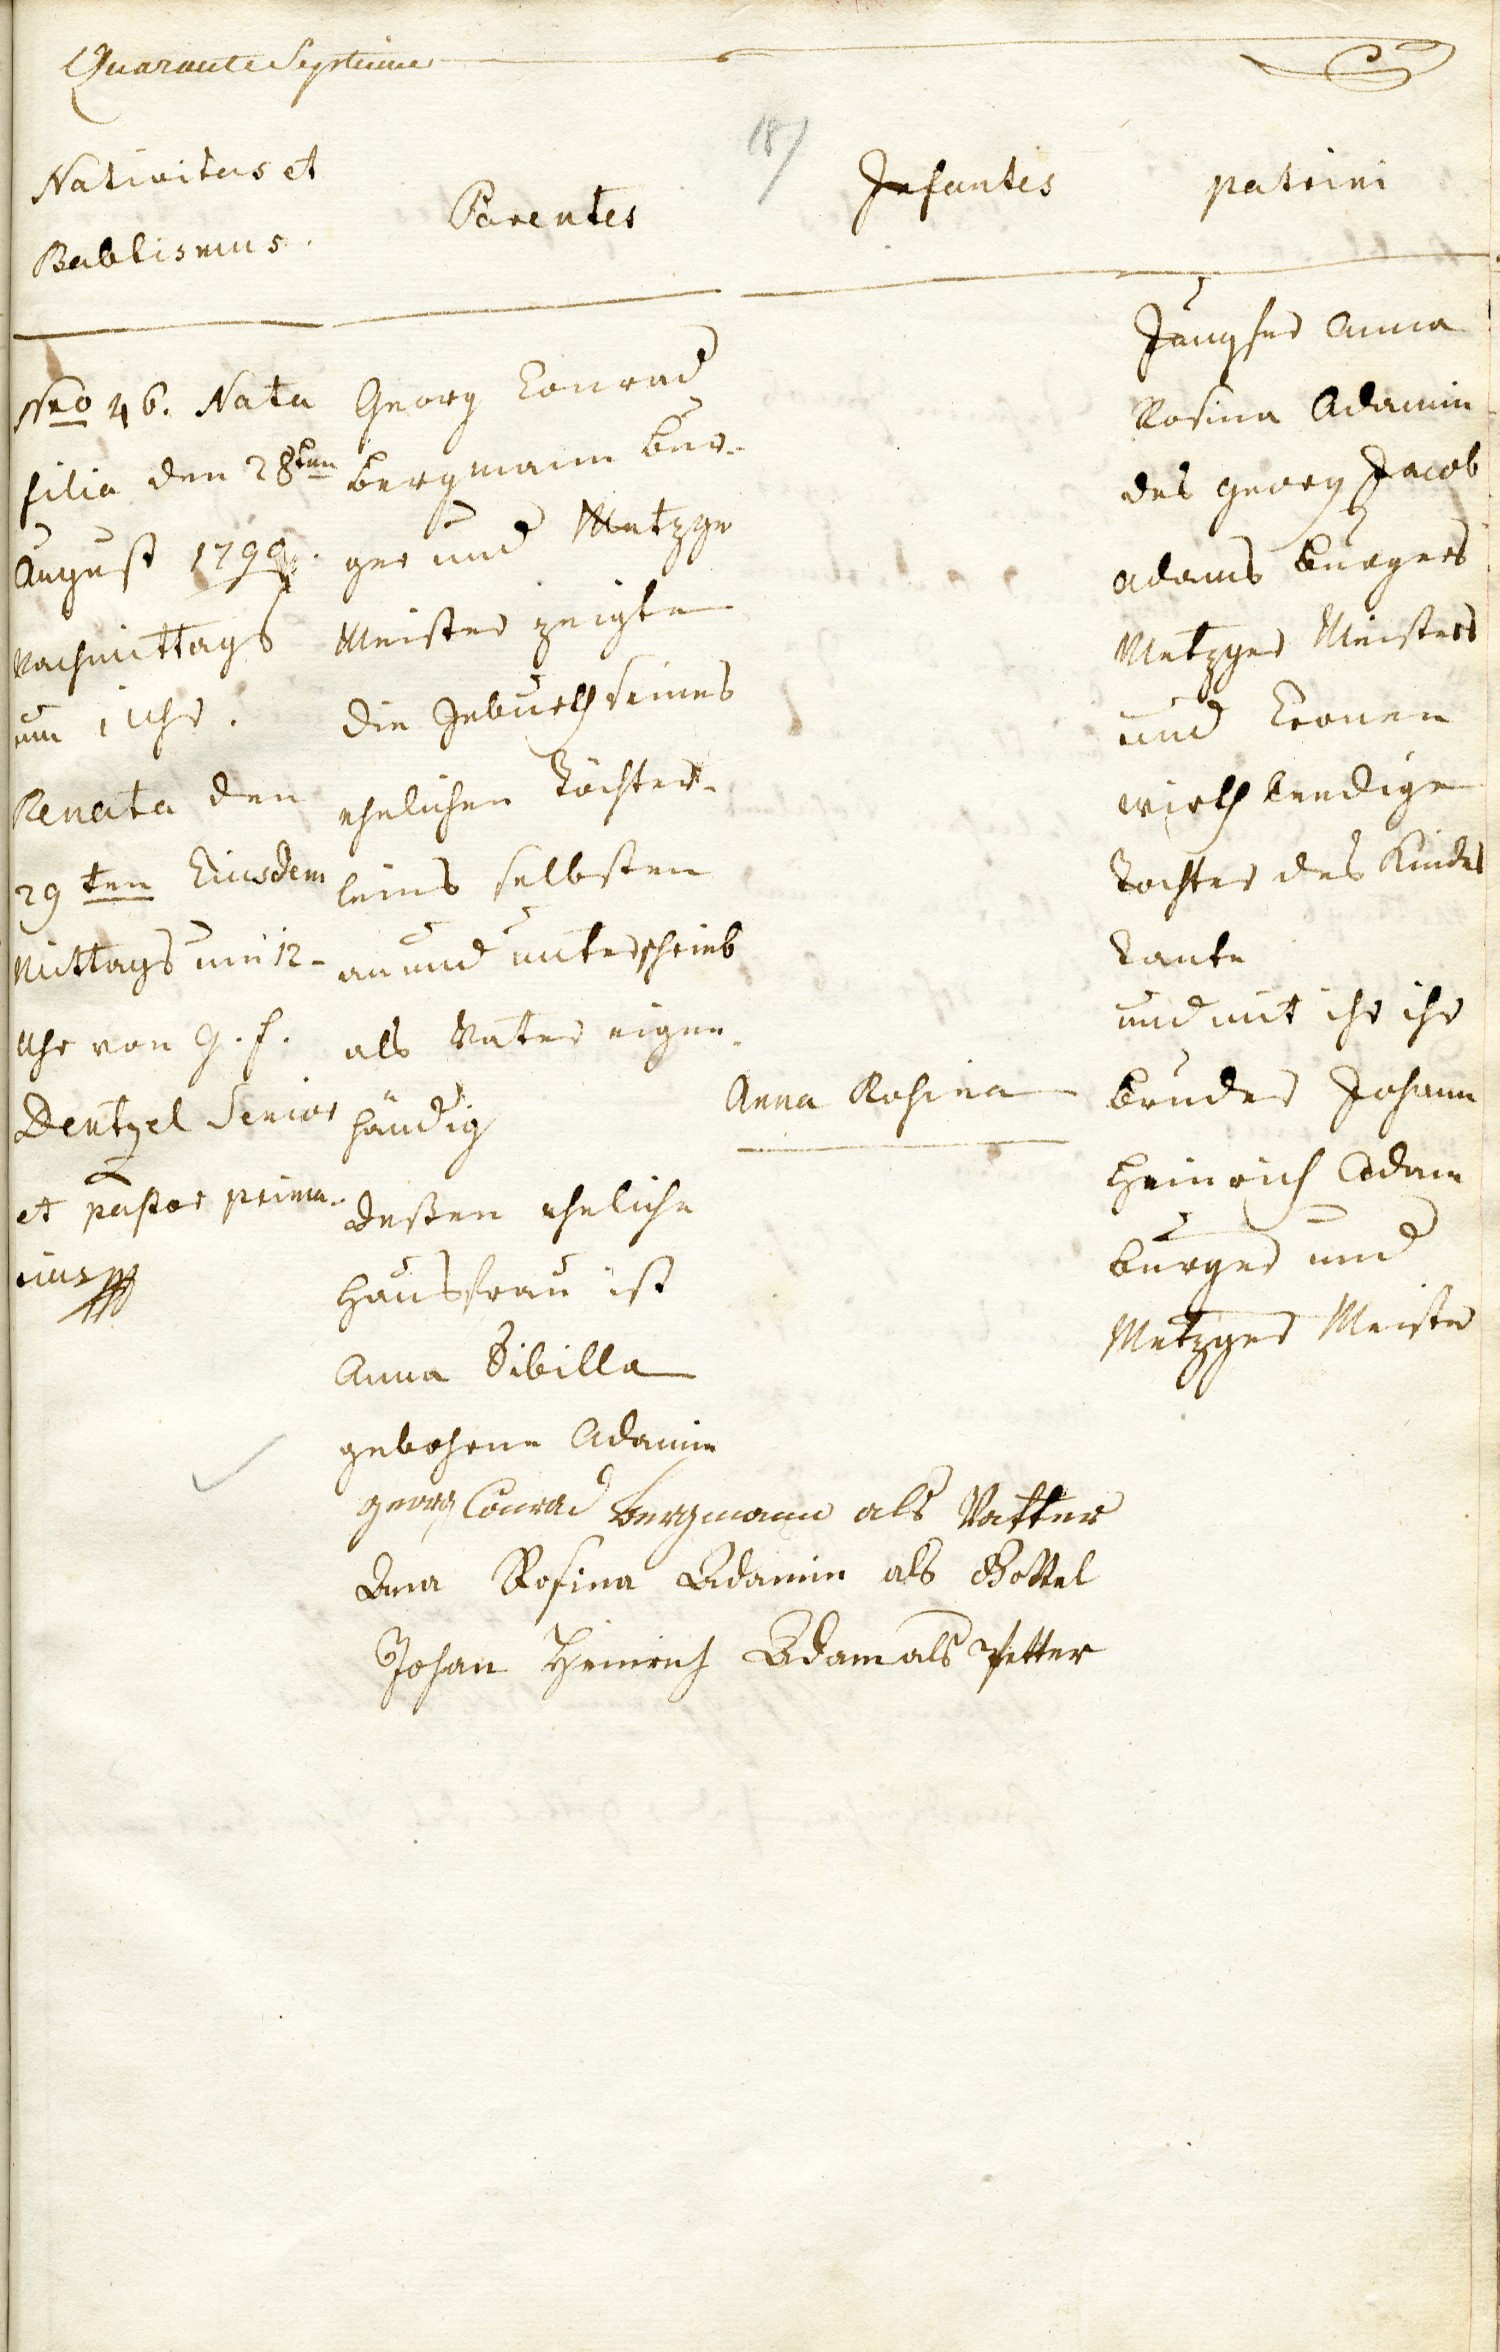 Quarante Septieme
187
Nativitas et
Babtismus.
Parentes
Infantes
patrini
Nro 46. Nata
filia den 28ten
August 1799.
Nachmittags
um 1 Uhr.
Renata den
29 ten Eiusdem
Mittags um 12-
Uhr von G. f.
Dentzel Senior
et pastor prima-
rius
Georg Conrad
Bergmann Bur-
ger und Metzge
Meister zeigte
die Geburth seines
ehelichen Töchter-
leins selbsten
an und unterschrieb
als Vater eigen-
händig
deßen eheliche
Hausfrau ist
Anna Sibilla
gebohrne Adamin
Anna Rosina
Jungfer Anna
Rosina Adamin
des Georg Jacob
Adams Burgers
Metzger Meisters
und Cronen
wirth leedige
Tochter des Kindes
Tante
und mit ihr ihr
Bruder Johann
Heinrich Adam
Burger und
Metzger Meister
Georg Conrad Bergmann als Vatter
Ana Rosina Adamin als Gottel
Johan Heinrich Adam als Petter